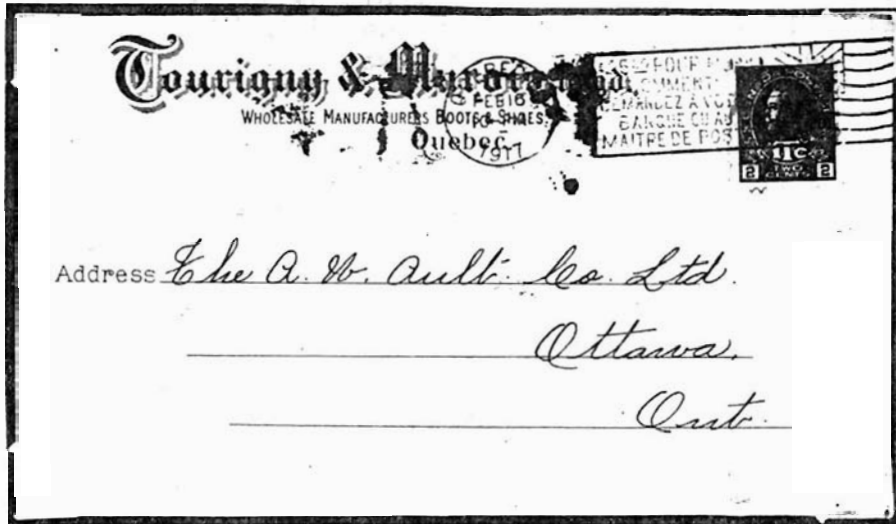 Tourigny &
WHOLESALE MANUFACTURERS BOOTS & SHOES
Quebec
FEB 16
1917
COMMENT
DEMANDEZ A
BANQUE OU AU
MAITRE DE POSTE
1TC
2 TWO CENTS 2
Address The A. W. Ault Co. Ltd.
Ottawa,
Ont.